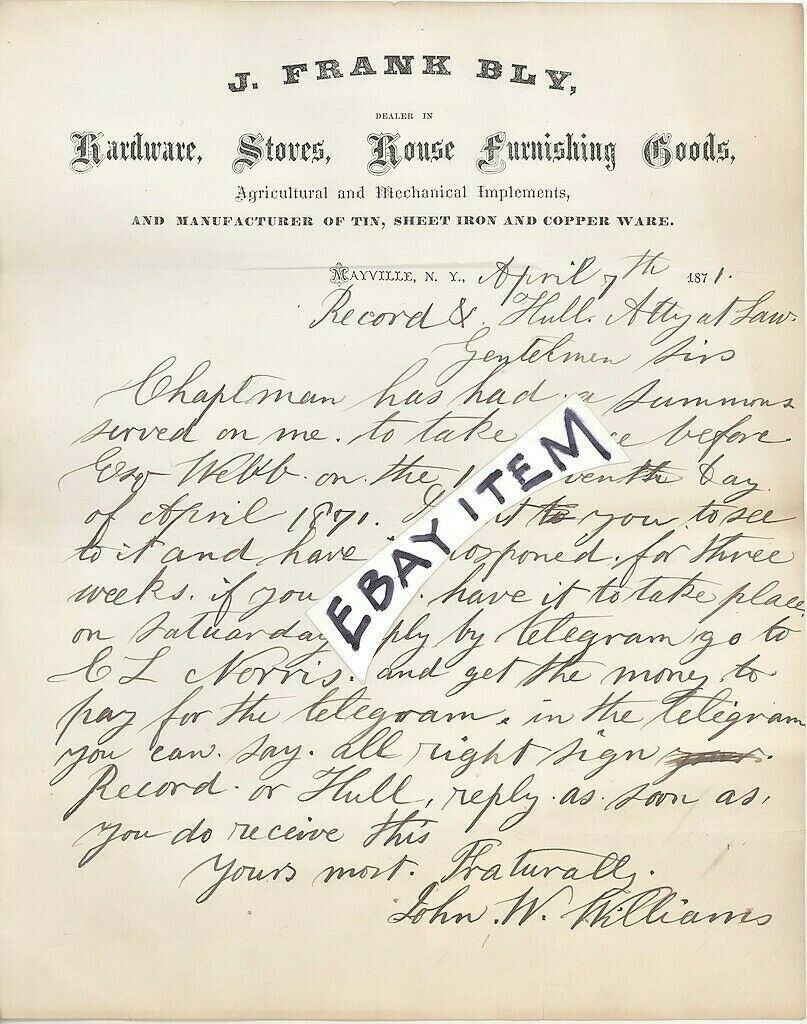 J. FRANK BLY,
DEALER IN
Hardware, Stoves, House Furnishing Goods,
Agricultural and Mechanical Implements,
AND MANUFACTURER OF TIN, SHEET IRON AND COPPER WARE.
MAYVILLE, N. Y., April 7th 1871.
Record & Hull. Atty at Law.
Gentelmen sirs
Chaptman has had a summons
served on me. to take before
Esq Webb. on the Day
of April 1871. it to you. to see
to it and have for three
weeks. if you have it to take place
on satuarday by telegram go to
C L Norris. and get the money to
pay for the telegram. in the telegram
you can. say. all right sign
Record. or Hull, reply. as. soon as,
you do receive this
Yours most. Fraturally.
John. W. Williams
EBAY ITEM